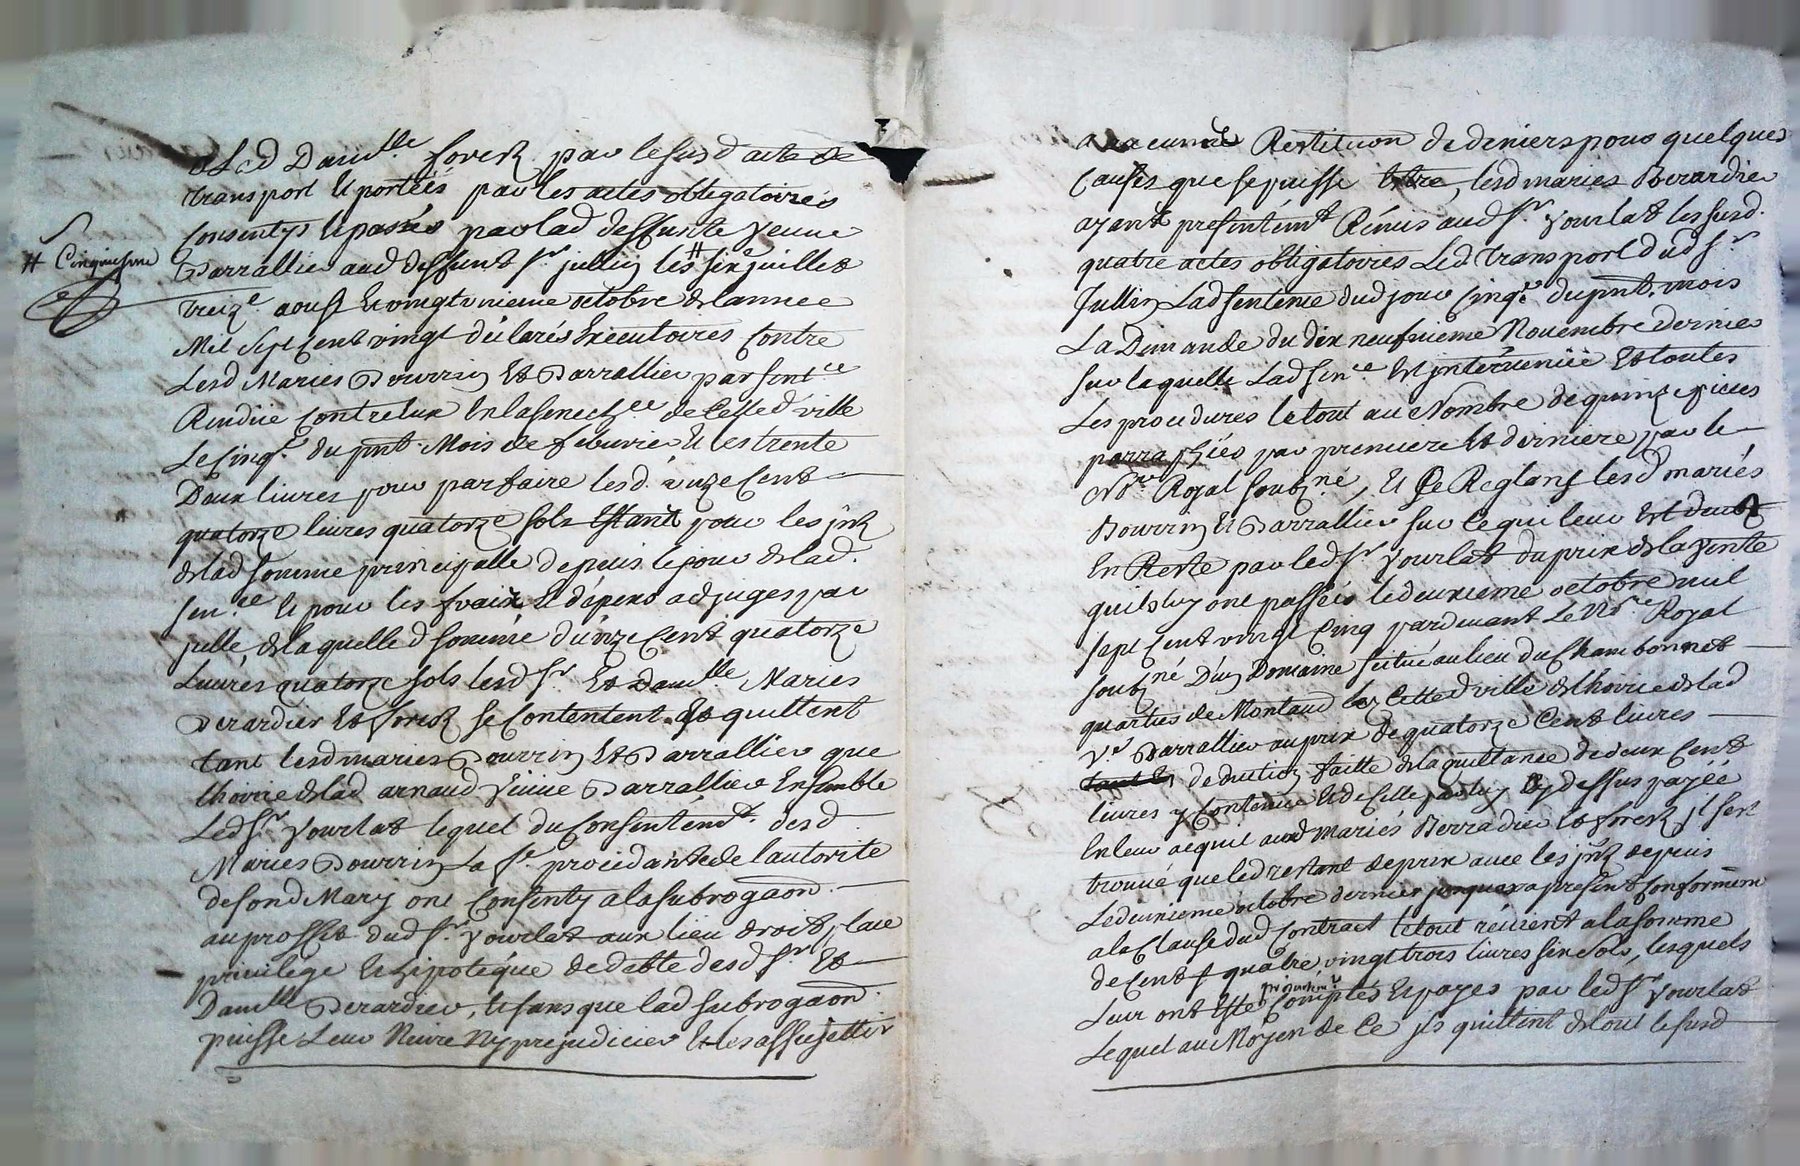 a Lad Damlle forest par le susd acte de
transport et portéés par les actes obligatoires
Consentys et passés par lad deffunte veuve
# Cinquiesme
Parrallier aud deffunt Sr jullien les # six juillet
treize aoust et vingtunieme octobre de lannee
Mil Sept Cent vingt déclarés Executoires Contre
Lesd Mariés Dourrin Et Parrallier par sentce
Rendüe Contre eux En la senechcée de Cette d ville
Le Cinqe du pnt Mois de febvrier Et les trente
Deux livres pour parfaire lesd. Cent
quatorze livres quatorze sols Estant pour les jntz
de lad somme principalle depuis le jour de lad.
sence Et pour les fraix Et dépens adjuges par
jcelle de la quelle d somme Cent quatorze
Livres quatorze sols lesd Sr Et Damlle Mariés
Berardier Et forest se Contentent Et quittent
tant lesd mariés Dourrin Et Parrallier que
lhoirie de lad arnaud veuve Parrallier Ensemble
Led Sr Yourlat lequel du Consentemt desd
Mariés Dourrin La fe procédante de lautorite
de sond Mary ont Consenty a la subrogaon.
au proffit dud Sr Yourlat aux lieu droit place
privilege Et hipoteque de debte desd Sr Et
Damlle Berardier, Et sans que lad subrogaon
puisse Leur Nuire Ny prejudicier Et les assujettir
a aucune Restitution de deniers pour quelques
Causes que se puisse Estre, lesd mariés Berardier
ayant presentemt Rémis aud Sr Yourlat les susd.
quatre actes obligatoires Led transport dud Sr
Jullien Lad sentence dud jour Cinqe du pnt. mois
La Demande du dix neufvieme Novembre dernier
sur laquelle Lad sence Est jntervenüe Et toutes
Les procedures le tout au Nombre de quinze pieces
parraphéés par premiere Et derniere par le
Nore Royal soubzné, Et se Reglans lesd mariés
Dourrin Et Parrallier sur ce qui leur Est deub
En Reste par led Sr Yourlat du prix de la vente
quils luy ont passéé le deuxieme octobre mil
sept Cent vingt Cinq pardevant Le Nore Royal
soubzné D'un Domaine scitué au lieu du Chambonnet
quartier de Montaud lez Cette d ville de lhoirie de lad
Ve Parrallier au prix de quatorze Cent livres
deduction faitte de la quittance de deux Cent
livres y Contenüe Et de Celle par luy Cy dessus payéé
En leur acquit aud mariés Berradier Et forest jl sest
trouvé que led restant de prix avec les jntz depuis
Le deuxieme octobre dernier jusques a present Conformemt
a la Clause dud Contract le tout révient a la somme
de Cent quatre vingt trois livres six sols, lesquels
Leur ont Esté presentemt Comptés Et payes par led Sr Yourlat
Lequel au Moyen de Ce jls quittent de tout le susd